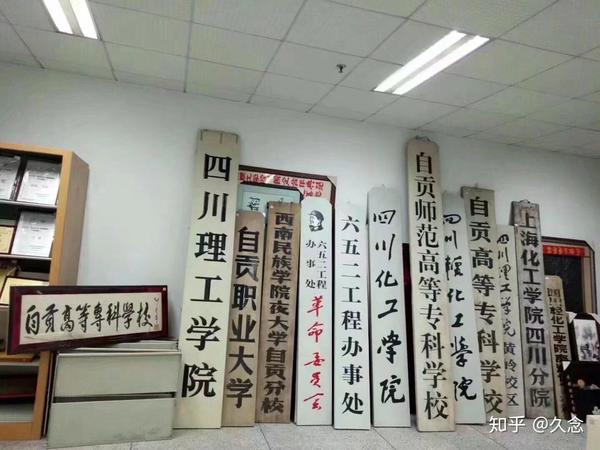 自贡高等專科學校
四川理工学院
自贡职业大学
西南民族学院夜大学自贡分校
六五二工程
办事处
革命委员会
六五二工程办事处
四川化工学院
自贡师范高等专科学校
四川轻化工学院
自贡高等专科学校
四川理工学院黄岭校区
上海化工学院四川分院
四川轻化工学院
知乎 @久念